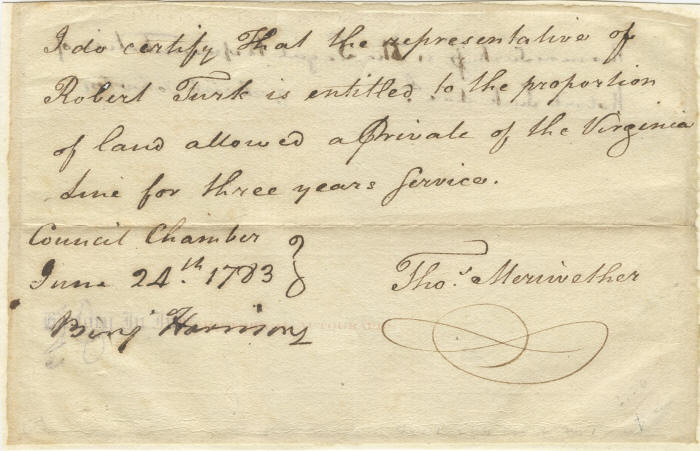 I do certify that the representative of
Robert Turk is entitled to the proportion
of land allowed a Private of the Virginia
Line for three years Service.
Council Chamber
June 24.th 1783
Thos. Meriwether
Benj Harrison